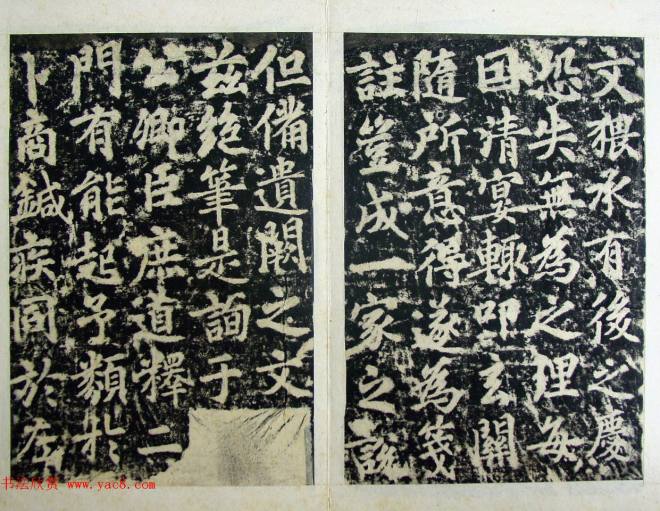 文猥承有後之慶
恐失無為之理每
因清宴輒叩玄關
隨所意得遂為箋
註豈成一家之說
但備遺闕之文
茲絕筆是詢于
公卿臣庶道釋二
門有能起予類於
卜商鍼疾同於左
书法欣赏 www.yac8.com